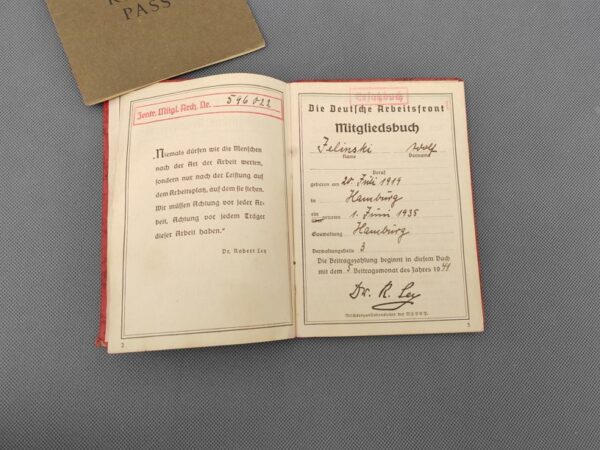 PASS
Zentr. Mitgl. Arch. Nr. 596022
„Niemals dürfen wir die Menschen
nach der Art der Arbeit werten,
sondern nur nach der Leistung auf
dem Arbeitsplatz, auf dem sie stehen.
Wir müssen Achtung vor jeder Ar-
beit, Achtung vor jedem Träger
dieser Arbeit haben.“
Dr. Robert Ley
2
Ersatzbuch
Die Deutsche Arbeitsfront
Mitgliedsbuch
Jelinski Adolf
Name Vorname
Beruf
geboren am 20. Juli 1919
in Hamburg
eingetreten 1. Juni 1935
Gauwaltung Hamburg
Verwaltungsstelle 3
Die Beitragszahlung beginnt in diesem Buch
mit dem 5 Beitragsmonat des Jahres 1941
Dr. R. Ley
Reichsorganisationsleiter der NSDAP.
3